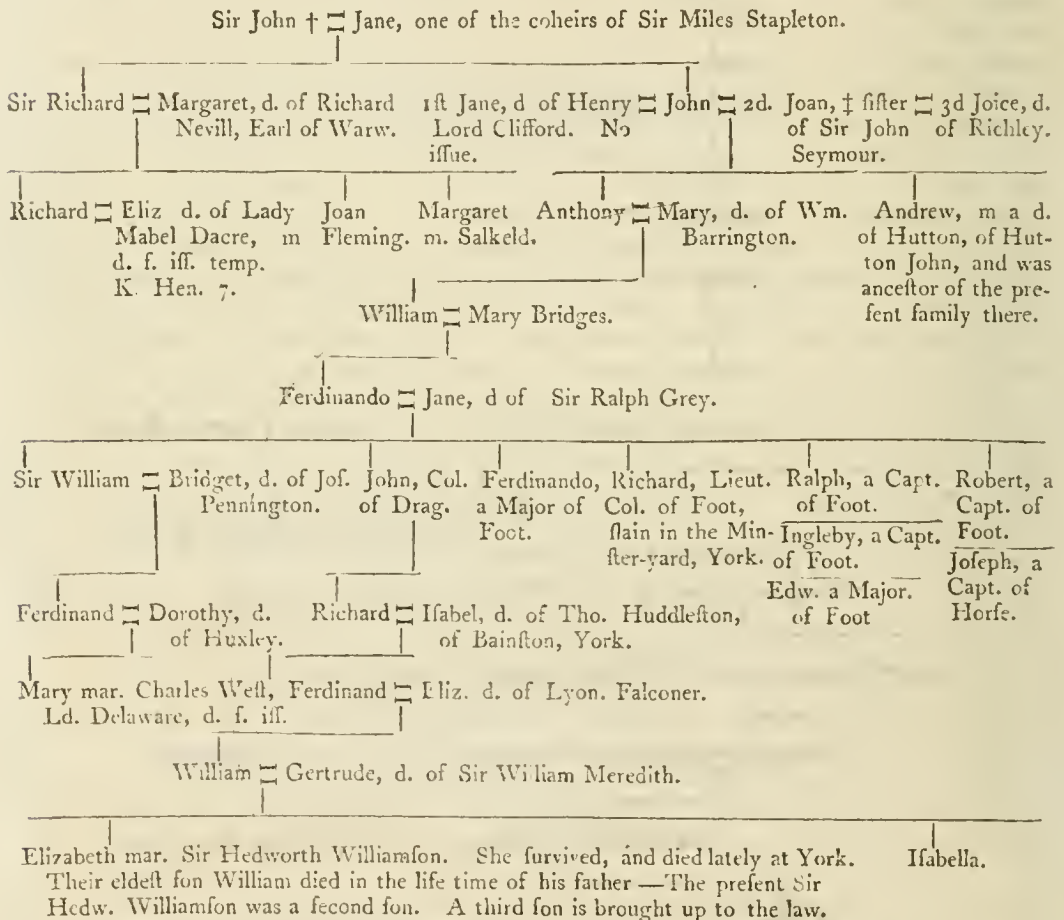 Sir John † Jane, one of the coheirs of Sir Miles Stapleton.
Sir Richard
Margaret, d. of Richard
Nevill, Earl of Warw.
1ſt Jane, d of Henry
Lord Clifford. No
iſſue.
John
2d. Joan, ‡ ſiſter
of Sir John
Seymour.
3d Joice, d.
of Richley.
Richard
Eliz d. of Lady
Mabel Dacre, m
d. ſ. iſſ. temp.
K. Hen. 7.
Joan
Fleming.
Margaret
m. Salkeld.
Anthony
Mary, d. of Wm.
Barrington.
Andrew, m a d.
of Hutton, of Hut-
ton John, and was
anceſtor of the pre-
ſent family there.
William Mary Bridges.
Ferdinando Jane, d of Sir Ralph Grey.
Sir William
Bridget, d. of Joſ.
Pennington.
John, Col.
of Drag.
Ferdinando,
a Major of
Foot.
Richard, Lieut.
Col. of Foot,
ſlain in the Min-
ſter-yard, York.
Ralph, a Capt.
of Foot.
Ingleby, a Capt.
of Foot.
Edw. a Major.
of Foot
Robert, a
Capt. of
Foot.
Joſeph, a
Capt. of
Horſe.
Ferdinand
Dorothy, d.
of Huxley.
Richard
Iſabel, d. of Tho. Huddleſton,
of Bainſton, York.
Mary mar. Charles Weſt,
Ld. Delaware, d. ſ. iſſ.
Ferdinand Eliz. d. of Lyon. Falconer.
William Gertrude, d. of Sir William Meredith.
Elizabeth mar. Sir Hedworth Williamſon. She ſurvived, and died lately at York.
Their eldeſt ſon William died in the life time of his father —The preſent Sir
Hedw. Williamſon was a ſecond ſon. A third ſon is brought up to the law.
Iſabella.